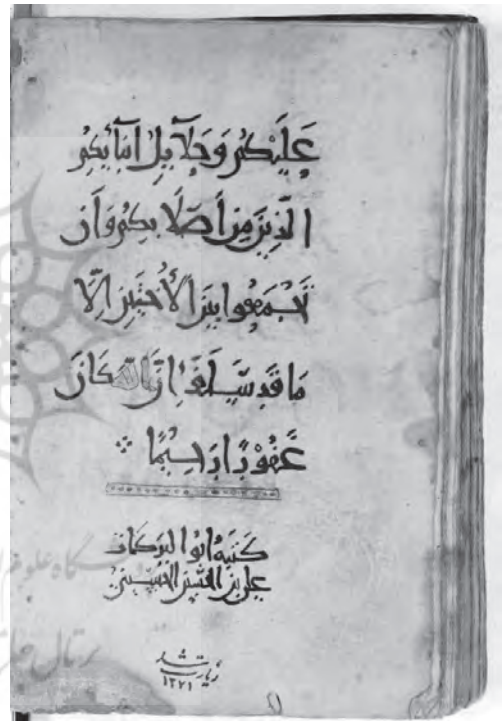 عَلَيْكُمْ وَحَلَآئِلُ اَبْنَآئِكُمُ
الَّذِيْنَ مِنْ اَصْلَابِكُمْ وَاَنْ
تَجْمَعُوا بَيْنَ الْاُخْتَيْنِ اِلَّا
مَا قَدْ سَلَفَ اِنَّ اللّٰهَ كَانَ
غَفُوْرًا رَحِيْمًا
كتبه ابوا البركات
علي بن الحسين الحسيني
زيارت شد
١٢٧١